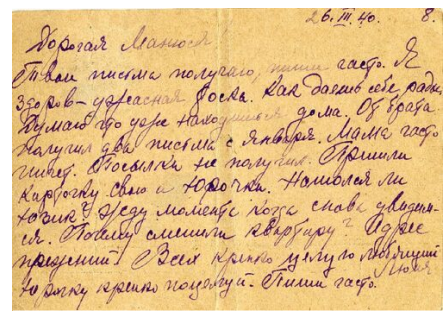 26.III.40. 8.
Дорогая Манюся
Твои письма получаю, пиши часто. Я
здоров – ужасная тоска. Как даешь себе рады.
Думаю что уже находишься дома. От брата
получил два письма с января. Мама часто
пишет. Посылки не получил. Пришли
карточку свою и Юрочки. Нашолся ли
Юзик? Жду момента когда снова увидим-
ся. Почему сменили квартиру? Адрес
прежний. Всех крепко целую любящий
Юрочку крепко поцелуй. Пиши часто.